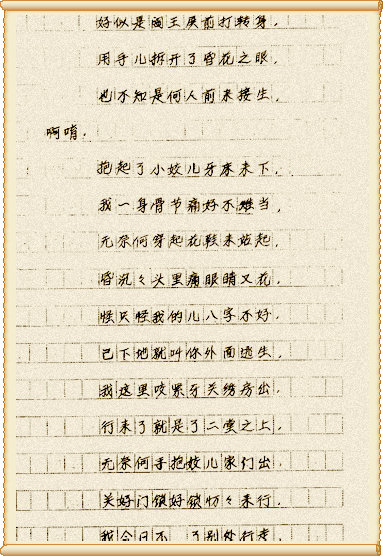 好似是阎王殿前打转身，
用手儿拆开了昏花之眼，
也不知是何人前来接生，
啊唷，
抱起了小姣儿牙床来下，
我一身骨节痛好不难当，
无奈何穿起花鞋来站起，
昏沉々头里痛眼睛又花，
怪只怪我的儿八字不好，
已下地就叫你外面逃生，
我这里咬累牙关绣房出，
行来了就是了二堂之上，
无奈何手抱姣儿家门出，
关好门锁好锁忉々来行，
我今日不 了别处行走，